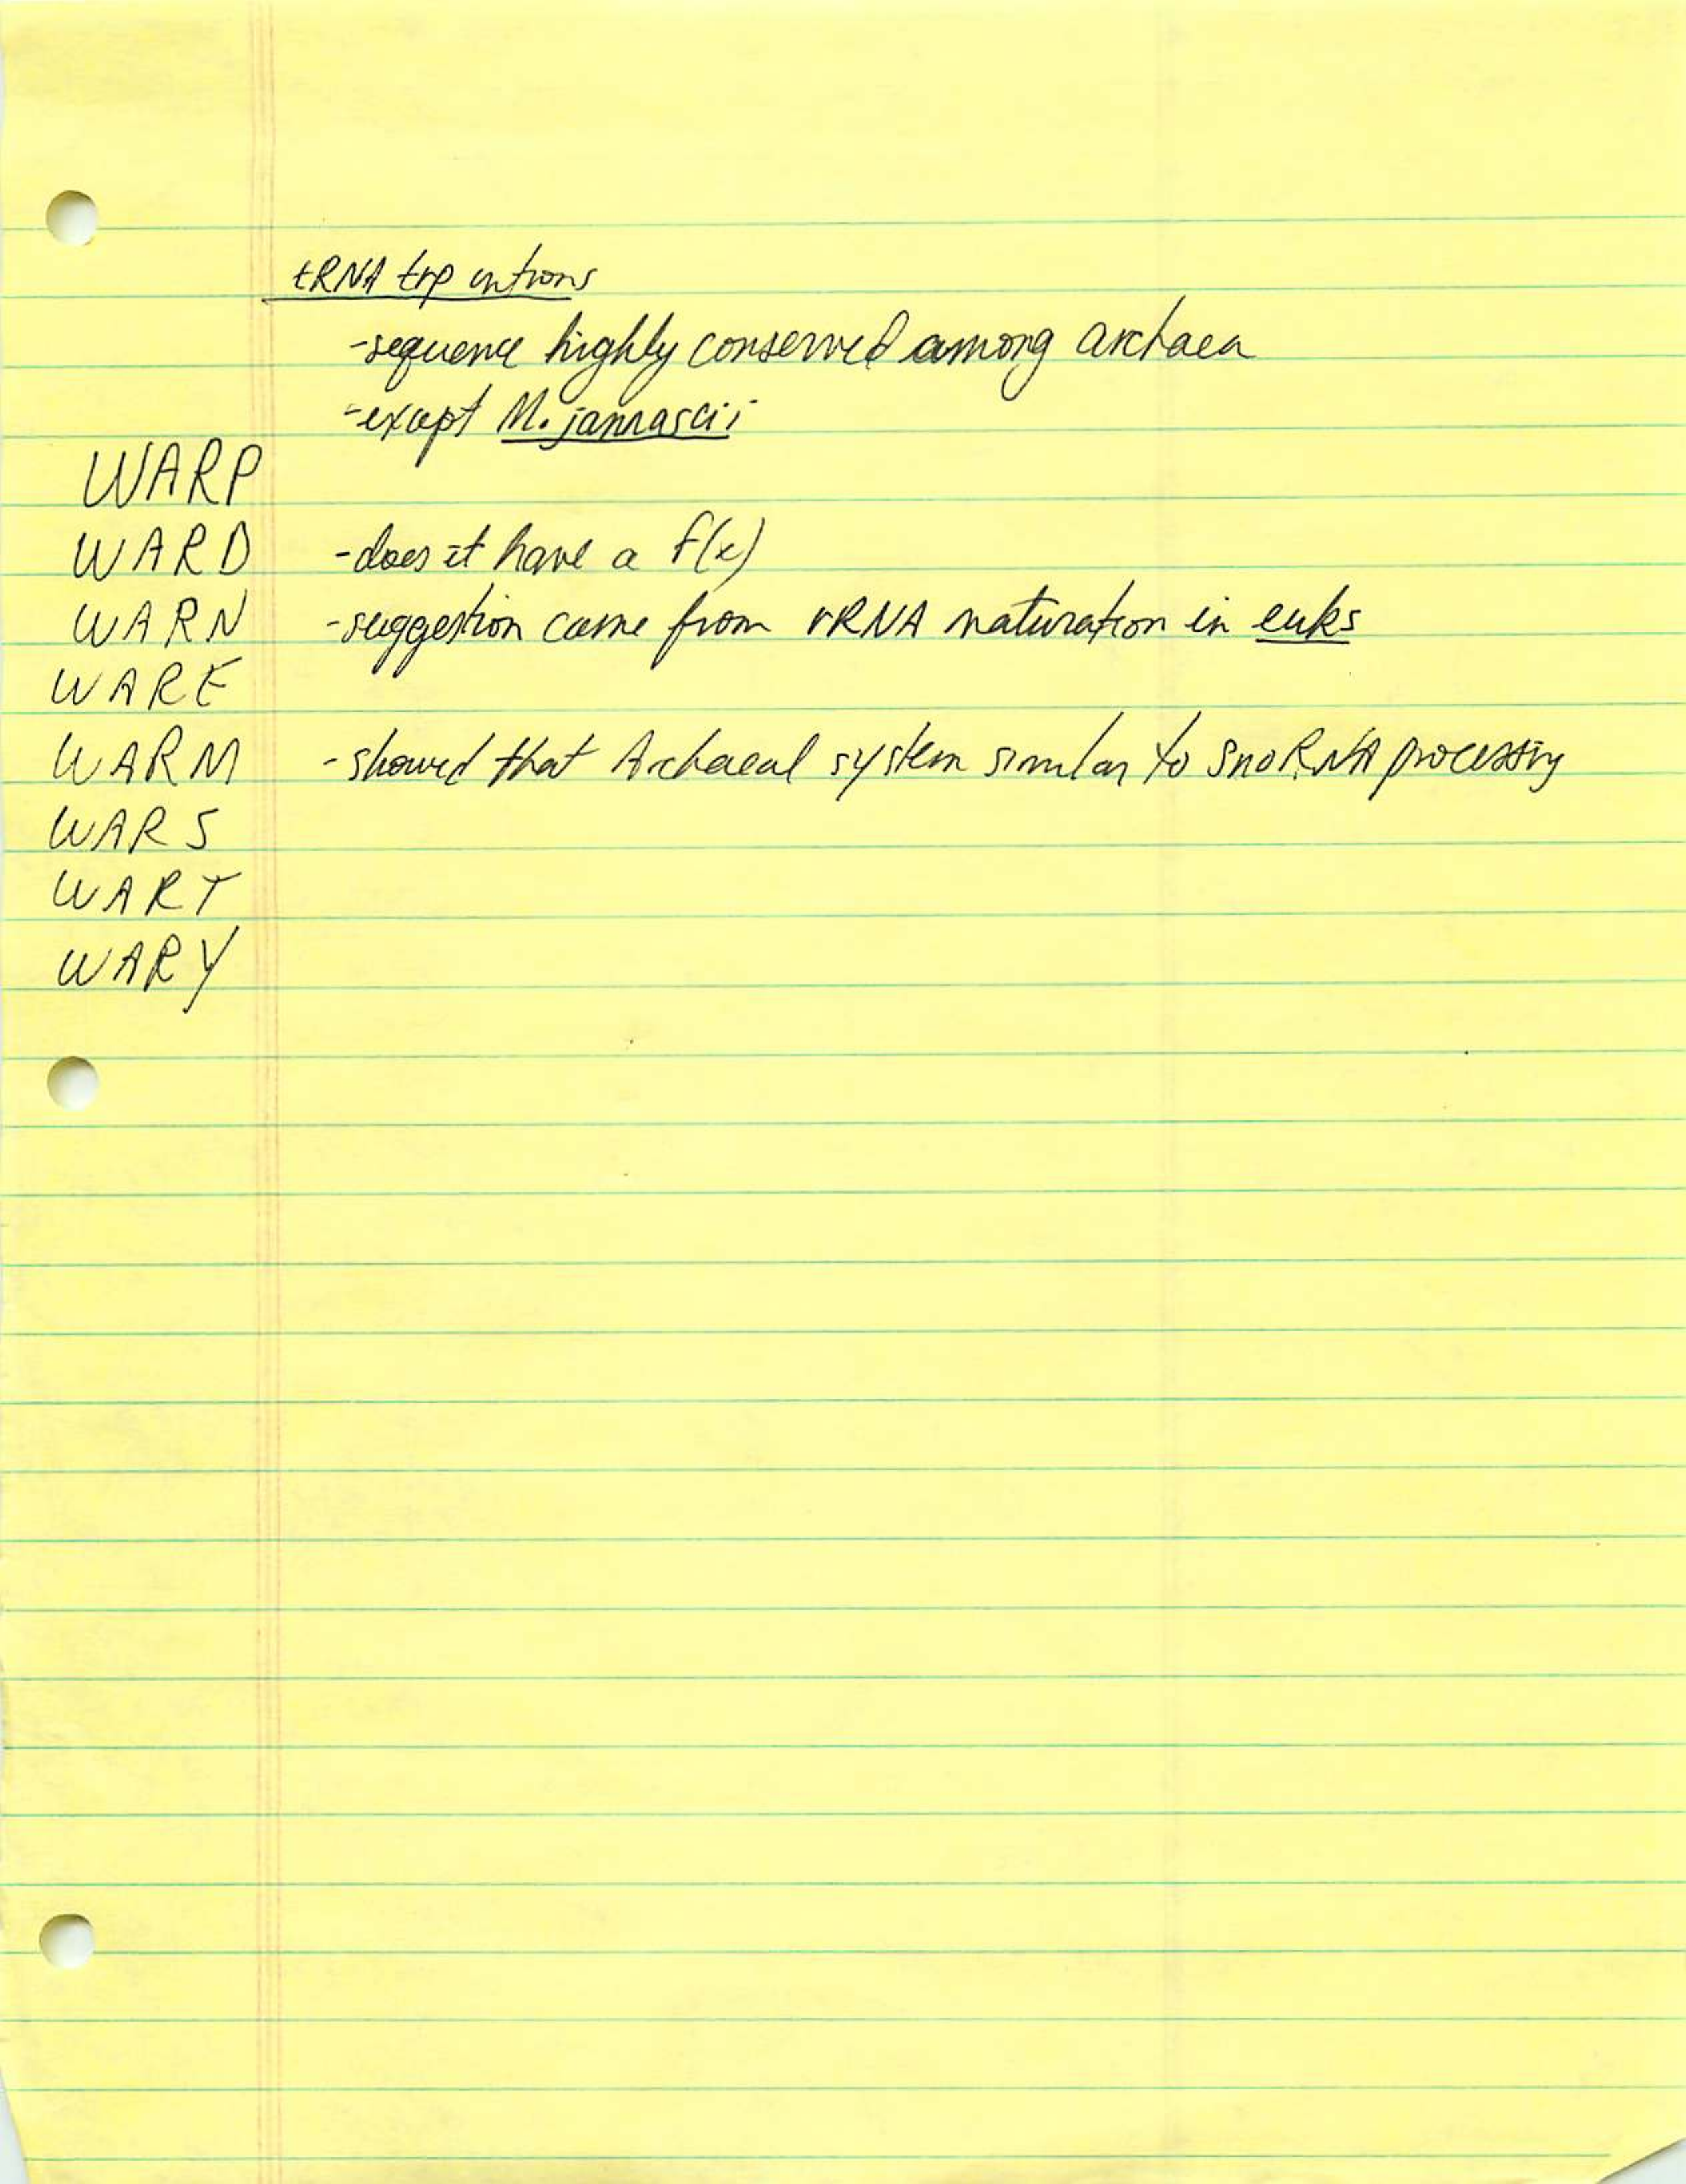 tRNA trp introns
-sequence highly conserved among archaea
-except M. jannascii
WARP
WARD
-does it have a f(x)
WARN
-suggestion came from rRNA maturation in euks
WARE
WARM
-showed that Archaeal system similar to snoRNA processing
WARS
WART
WARY